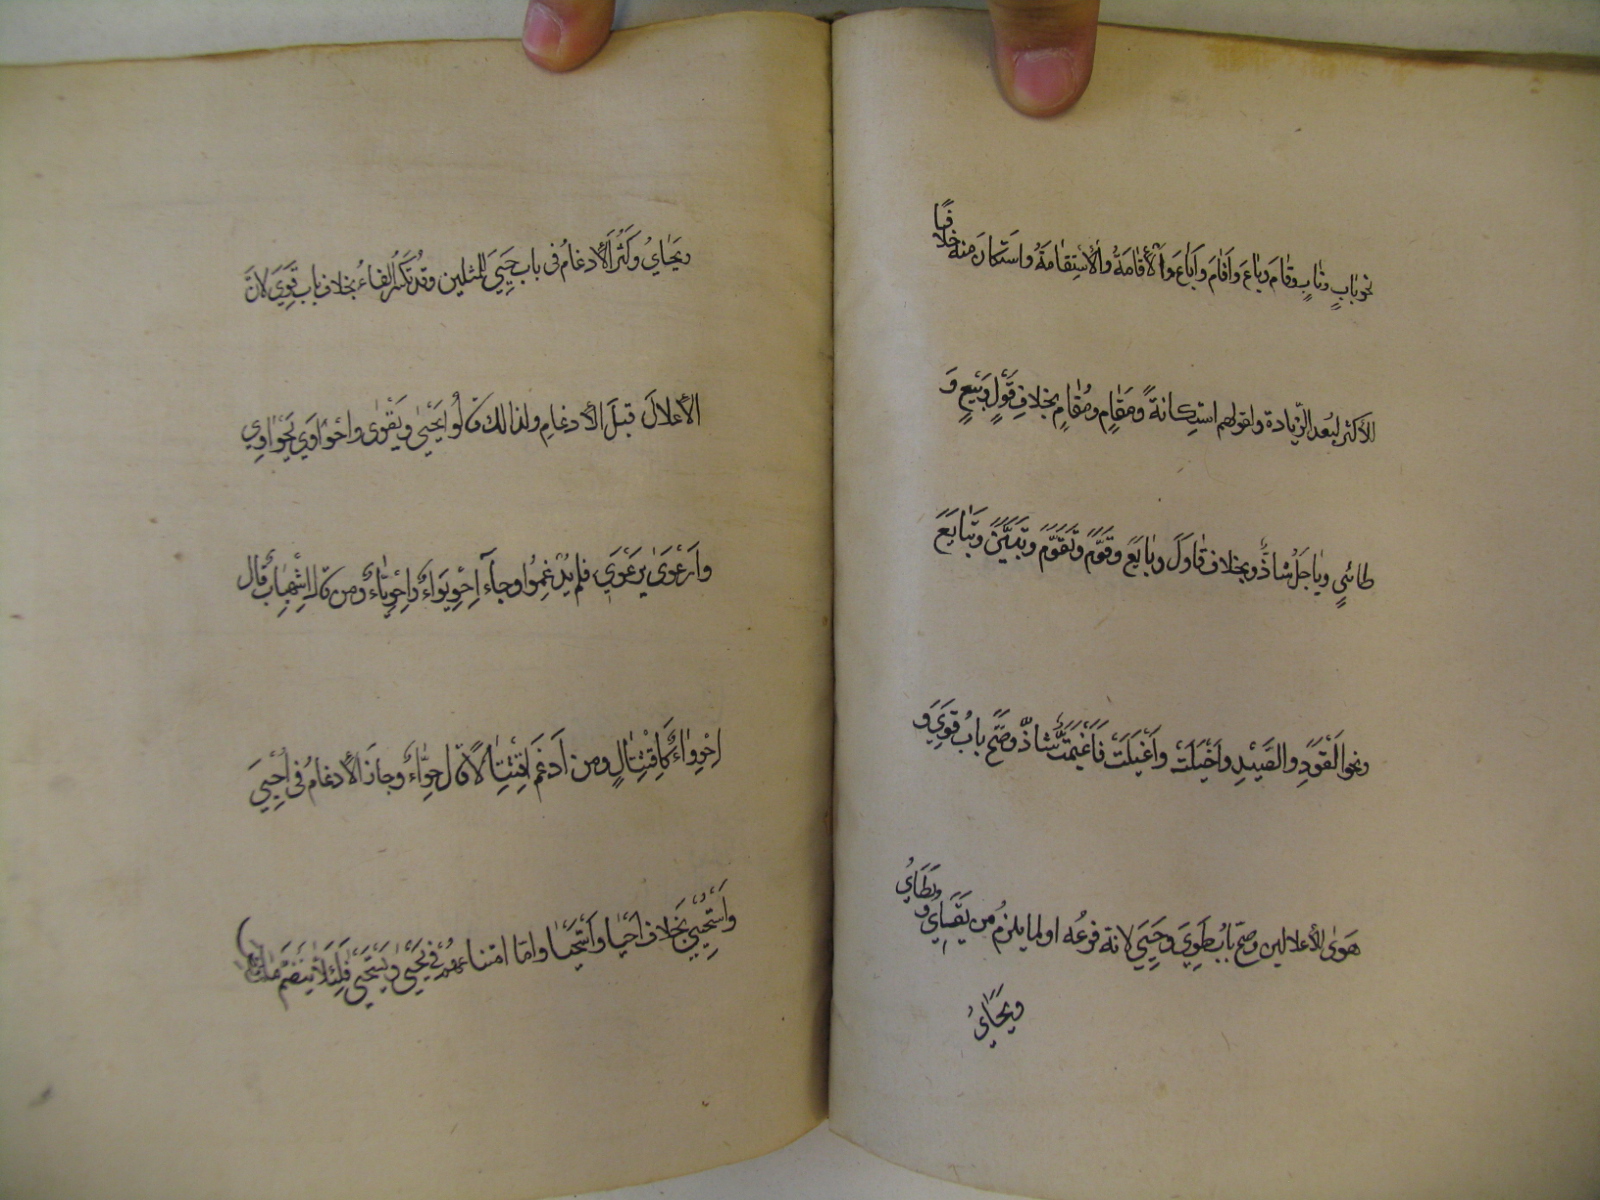 نحو بَابٍ ونَابٍ وقَامَ وبَاعَ وَاَقَامَ وَاَبَاعَ وَالْاِقَامَةُ وَالْاِسْتِقَامَةُ وَاسْتَكَانَ منه خلافًا
للاكثر لبُعد الزّيادة ولقولهم استِكَانةً ومَقَامٍ ومُقَامٍ بخلافِ قَوْلٍ وبَيْعٍ وَ
طائىٍّ ويَاجَلُ شاذٌّ وبخلاف قَاوَلَ وبَايَعَ وقَوَّمَ وتَقَوَّمَ وتَبَيَّنَ وتَبَايَعَ
ونحو الْقَوَدِ والصَّيَدِ واَخْيَلَتْ واَغْيَلَتْ واَغْيَمَتْ شاذّ وصَحّ بابُ قَوِيَ وَ
هَوىٰ للأعلالين وصَحّ بابُ طَوِيَ وحَيِيَ لانه فرعُه او لما يلزمُ من يَقَايُ ويَطَايُ
ويَحَايُ
ويَحَايُ وكَثُرَ الْاِدغامُ فى باب حَيِىَ للمثلين وقد تُكسَرُ الفاءُ بخلاف باب قَوِىَ لانَّ
الأعلالَ قبلَ الادغامِ ولذالك قالُوا يَحْيىٰ ويَقْوىٰ واحْوَاوىٰ يَحْوَاوِي
وَارْعَوىٰ يَرْعَوِي فلم يُدْغِمُوا وجآء اِحْوِيوَاءٌ واِحْوِيَّاءٌ ومن قال اشْهِبَابٌ قال
احْوِوَاءٌ كَاقْتِتَالٍ ومن اَدغَمَ اقْتِتَالًا قال حِوَّاءٌ وجازَ الادغامُ فى اُحْيِيَ
واسْتُحْيِيَ بخلاف اَحْيَا واسْتَحْيَا وامّا امتناعهم فى يُحْيِي ويَسْتَحْيِي فَلِئَلَّا ينضمّ